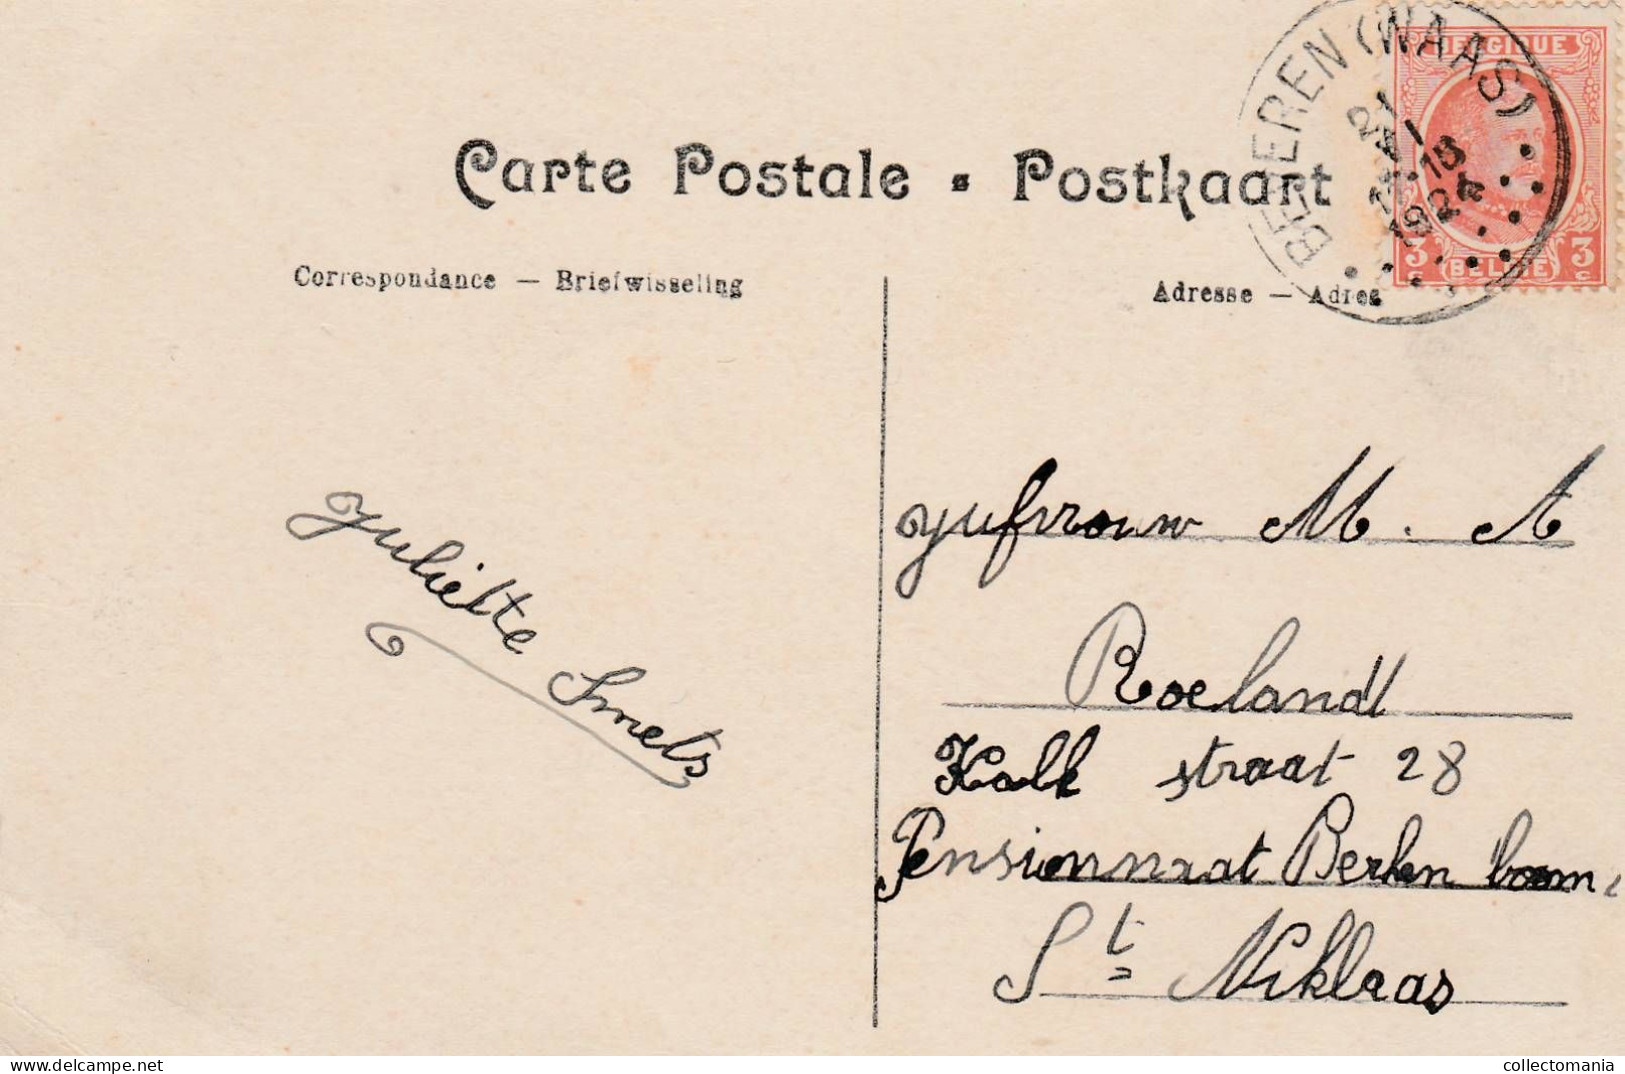 Carte Postale • Postkaart
BEVEREN (WAAS)
BELGIQUE
3 C BELGIË 3 C
Correspondance — Briefwisseling
Adresse — Adres
Juliette Smets
Jufvrouw M. A
Roelandt
Kalk straat 28
Pensionnaat Berken boom
St Niklaas
collectomania - www.delcampe.net